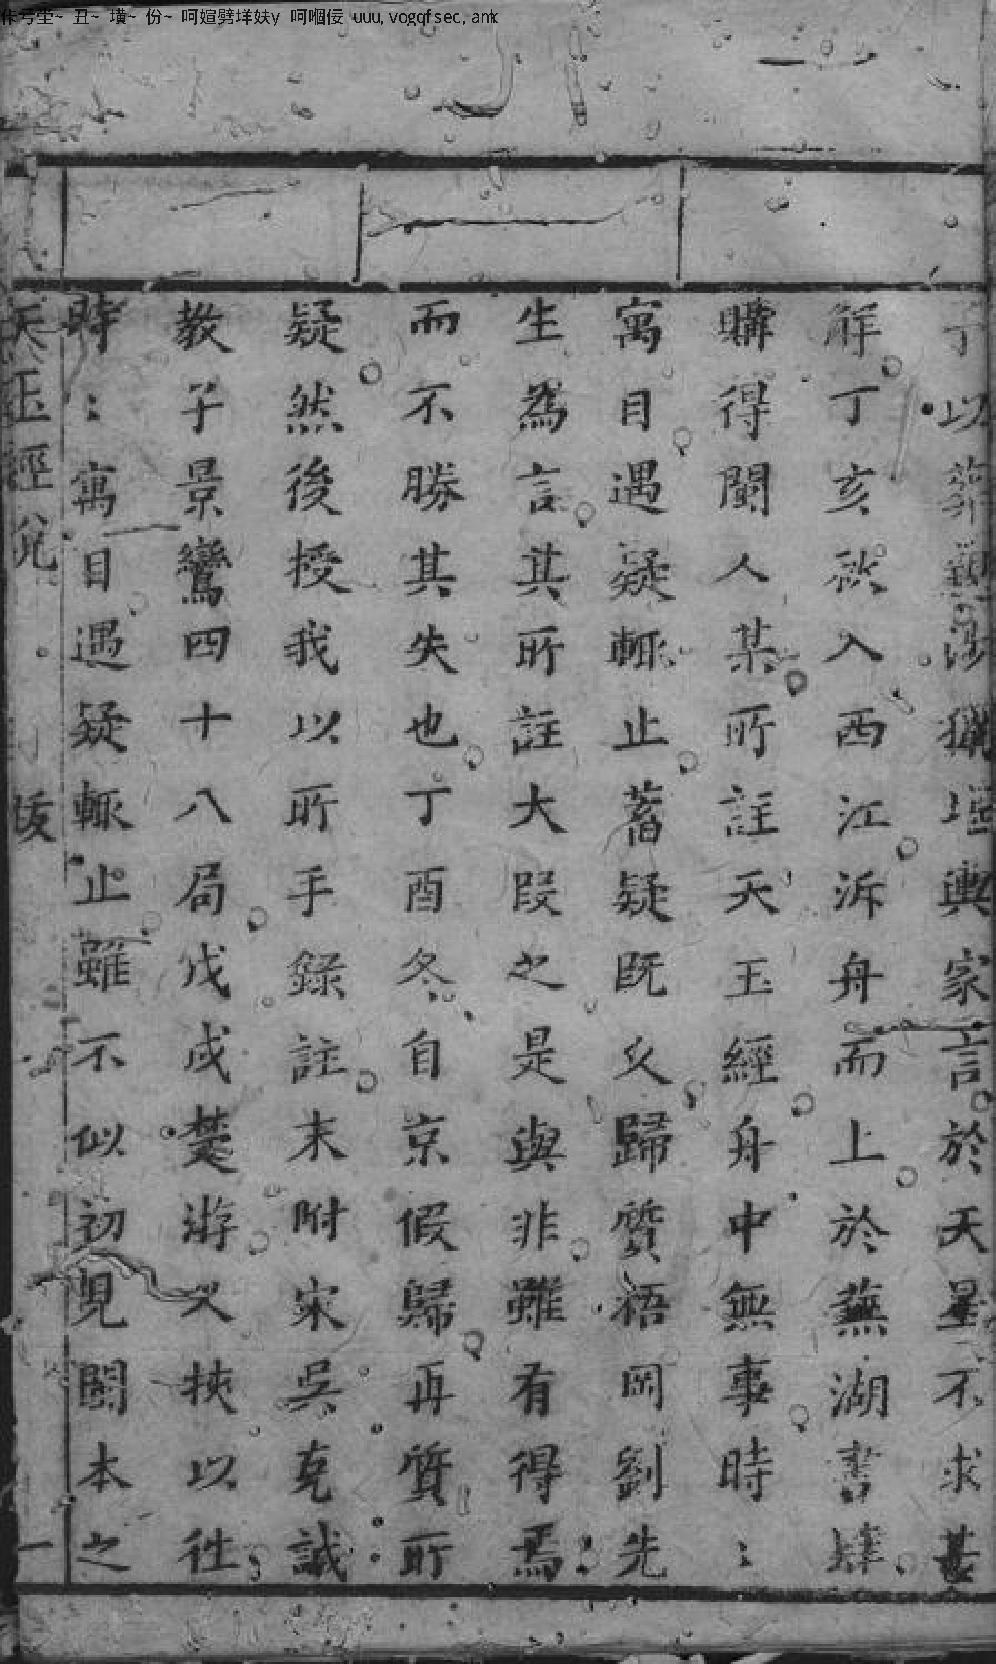 丁以葬親涉獵堪輿家言於天星不求甚
解丁亥秋入西江泝舟而上於蕪湖書肆
購得閩人某所註天玉經舟中無事時：
寓目遇疑輒止蓄疑既久歸質梧岡劉先
生為言其所註大段之是與非雖有得焉
而不勝其失也丁酉冬自京假歸再質所
疑然後授我以所手錄註末附宋吳克誠
教子景鸞四十八局戊戌楚游又挾以往
時：寓目遇疑輒止雖不似初見閩本之
天玉經說 後 一